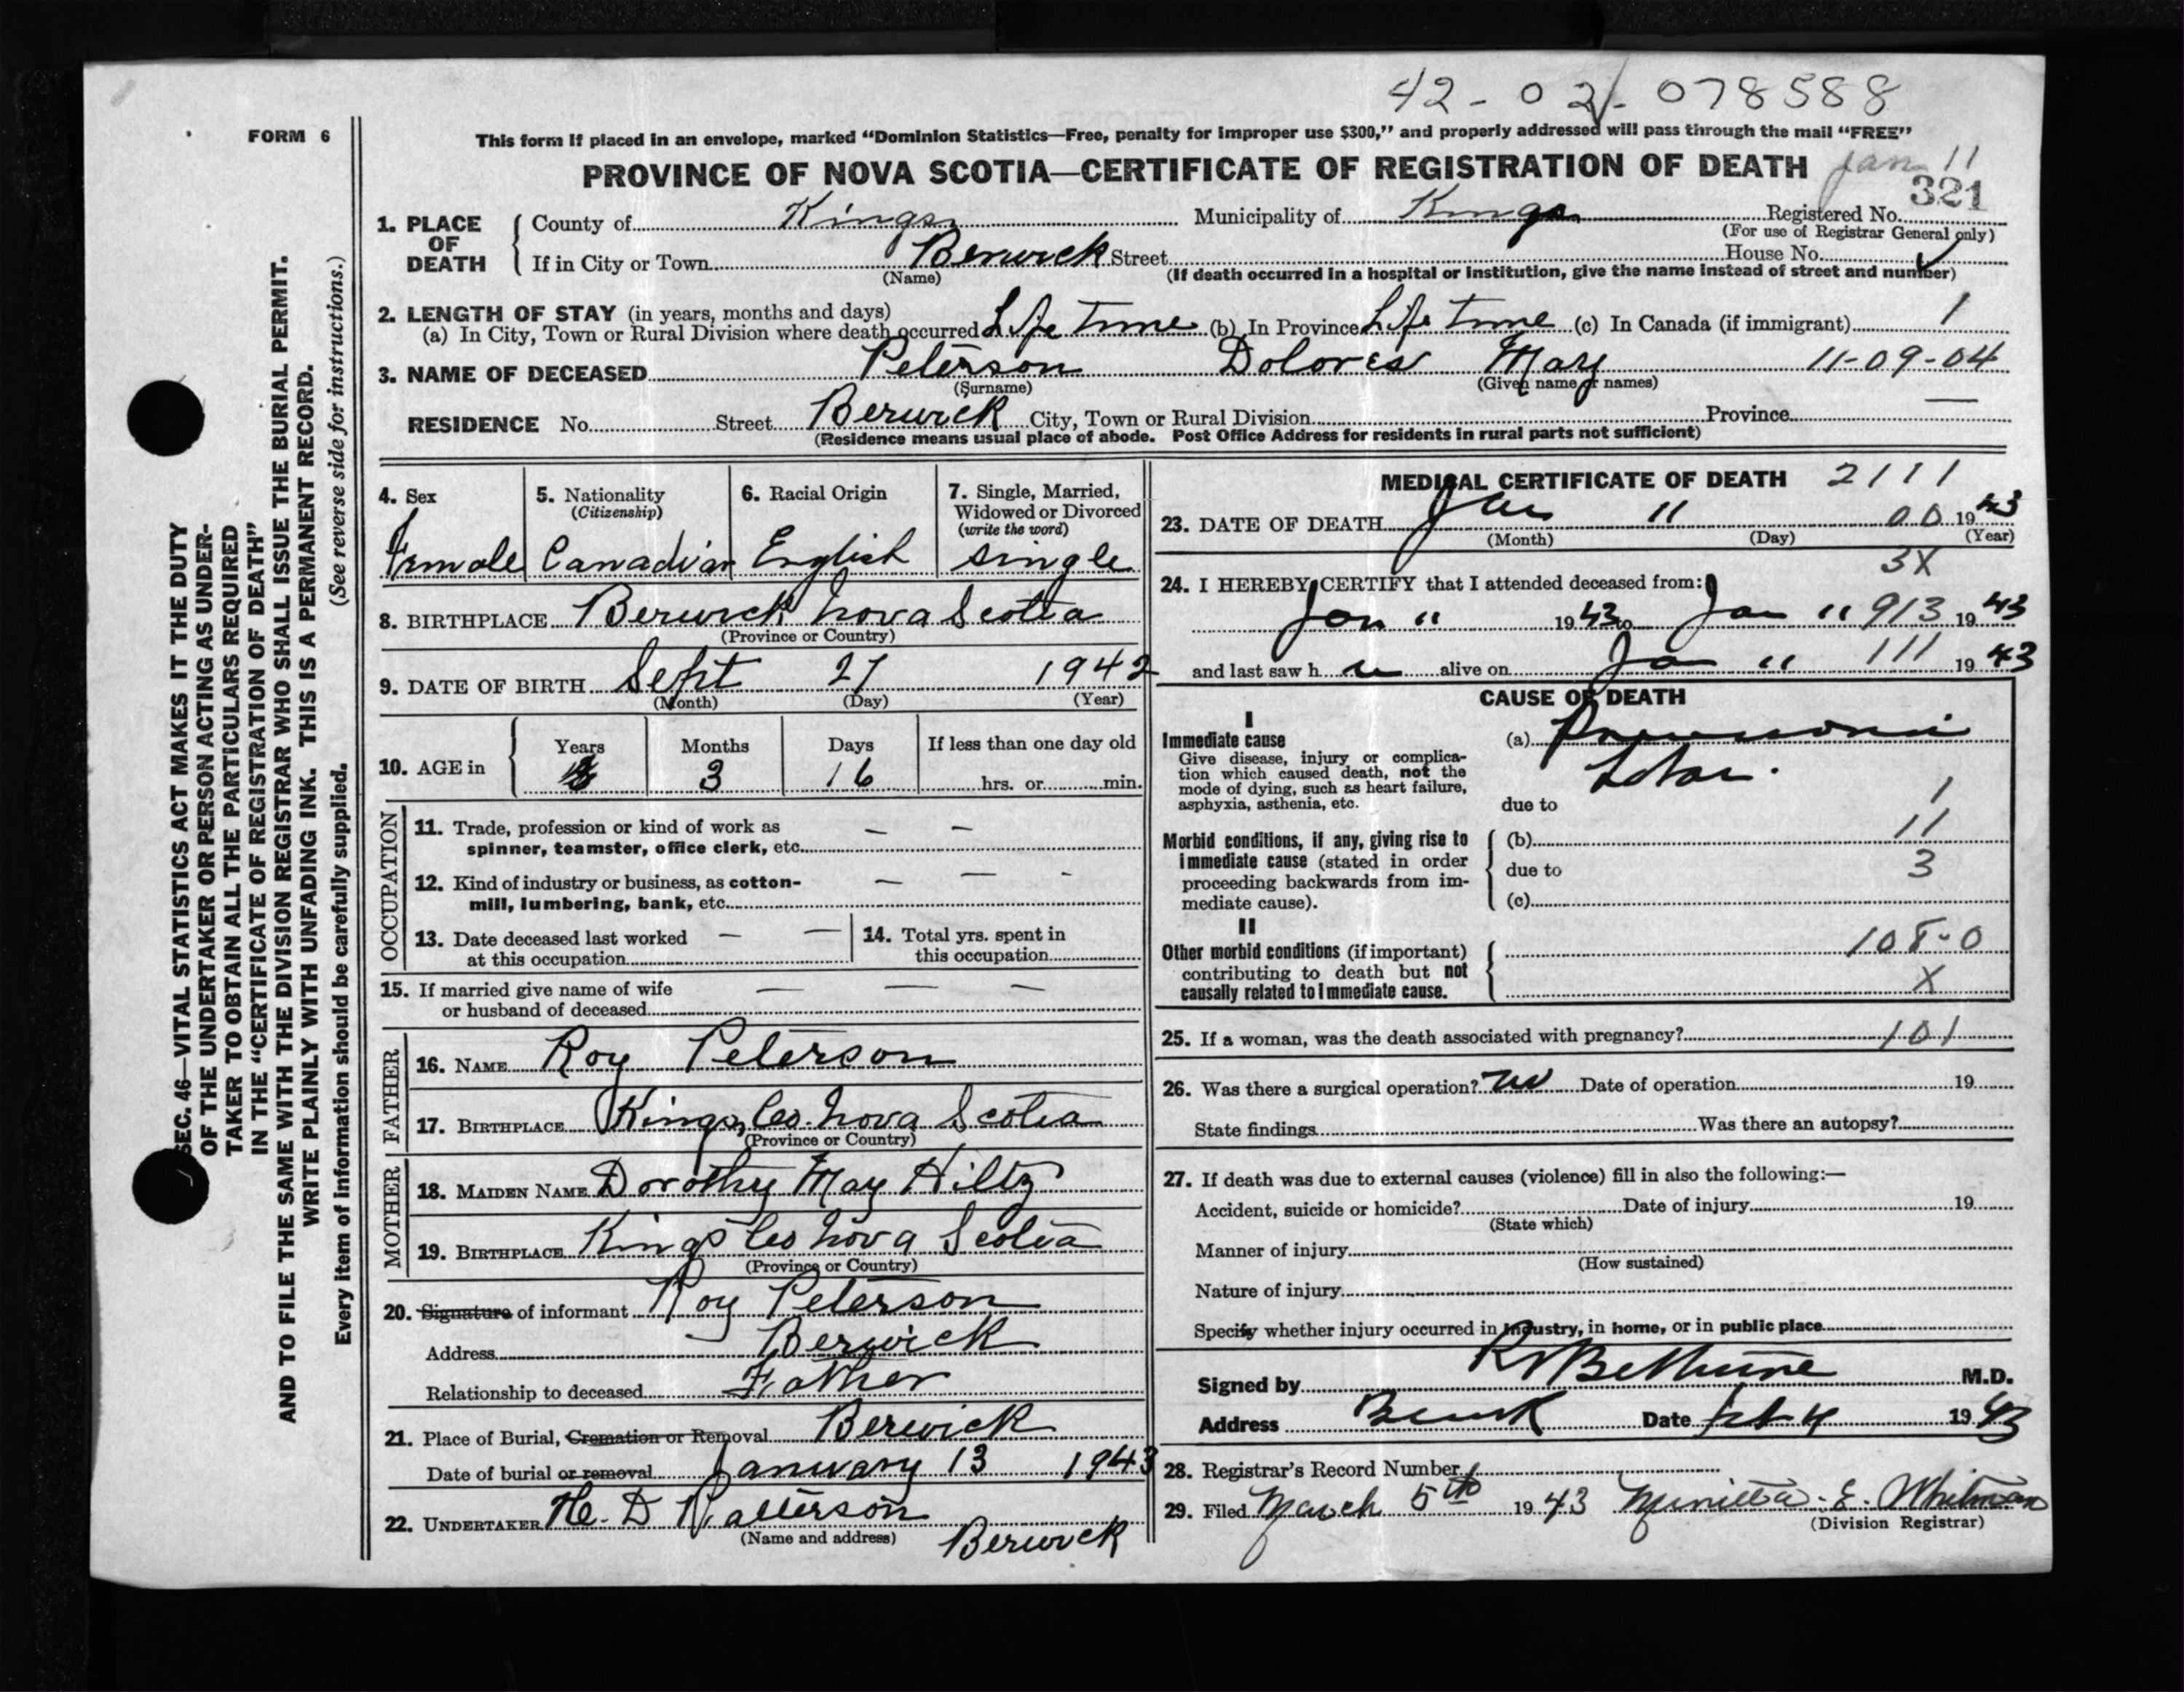 42-02-078588
FORM 6
This form if placed in an envelope, marked "Dominion Statistics—Free, penalty for improper use $300," and properly addressed will pass through the mail "FREE"
PROVINCE OF NOVA SCOTIA—CERTIFICATE OF REGISTRATION OF DEATH Jan 11
321
1. PLACE OF DEATH { County of Kings Municipality of Kings Registered No.
(For use of Registrar General only)
If in City or Town Berwick Street House No.
(Name) (If death occurred in a hospital or institution, give the name instead of street and number)
2. LENGTH OF STAY (in years, months and days)
(a) In City, Town or Rural Division where death occurred Life Time (b) In Province Life Time (c) In Canada (if immigrant) 1
3. NAME OF DECEASED Peterson Dolores Mary 11-09-04
(Surname) (Given name or names)
RESIDENCE No. Street Berwick City, Town or Rural Division Province —
(Residence means usual place of abode. Post Office Address for residents in rural parts not sufficient)
SEC. 46—VITAL STATISTICS ACT MAKES IT THE DUTY
OF THE UNDERTAKER OR PERSON ACTING AS UNDER-
TAKER TO OBTAIN ALL THE PARTICULARS REQUIRED
IN THE "CERTIFICATE OF REGISTRATION OF DEATH"
AND TO FILE THE SAME WITH THE DIVISION REGISTRAR WHO SHALL ISSUE THE BURIAL PERMIT.
WRITE PLAINLY WITH UNFADING INK. THIS IS A PERMANENT RECORD.
Every item of information should be carefully supplied. (See reverse side for instructions.)
4. Sex 5. Nationality 6. Racial Origin 7. Single, Married,
(Citizenship) Widowed or Divorced
(write the word)
Female Canadian English single
8. BIRTHPLACE Berwick Nova Scotia
(Province or Country)
9. DATE OF BIRTH Sept 27 1942
(Month) (Day) (Year)
10. AGE in { Years Months Days If less than one day old
3 16 hrs. or min.
OCCUPATION
11. Trade, profession or kind of work as — —
spinner, teamster, office clerk, etc.
12. Kind of industry or business, as cotton- — — -
mill, lumbering, bank, etc.
13. Date deceased last worked — — 14. Total yrs. spent in
at this occupation this occupation
15. If married give name of wife — — —
or husband of deceased
FATHER
16. NAME Roy Peterson
17. BIRTHPLACE Kings Co. Nova Scotia
(Province or Country)
MOTHER
18. MAIDEN NAME Dorothy May Hiltz
19. BIRTHPLACE Kings Co Nova Scotia
(Province or Country)
20. Signature of informant Roy Peterson
Address Berwick
Relationship to deceased Father
21. Place of Burial, Cremation or Removal Berwick
Date of burial or removal January 13 1943
22. UNDERTAKER H. D Patterson
(Name and address) Berwick
MEDICAL CERTIFICATE OF DEATH 2111
23. DATE OF DEATH Jan 11 00 1943
(Month) (Day) (Year)
3X
24. I HEREBY CERTIFY that I attended deceased from:
Jan 11 1943 to Jan 11 913 1943
and last saw h alive on Jan 11 111 1943
CAUSE OF DEATH
I
Immediate cause (a) Pneumonia
Give disease, injury or complica-
tion which caused death, not the
mode of dying, such as heart failure,
asphyxia, asthenia, etc. Lobar.
due to 1
Morbid conditions, if any, giving rise to (b) 11
immediate cause (stated in order
proceeding backwards from im- due to 3
mediate cause). (c)
II
Other morbid conditions (if important) 108-0
contributing to death but not
causally related to immediate cause. X
25. If a woman, was the death associated with pregnancy? 101
26. Was there a surgical operation? no Date of operation 19
State findings Was there an autopsy?
27. If death was due to external causes (violence) fill in also the following:—
Accident, suicide or homicide? Date of injury 19
(State which)
Manner of injury
(How sustained)
Nature of injury
Specify whether injury occurred in industry, in home, or in public place
Signed by Bethune M.D.
Address Berwick Date Feb 4 1943
28. Registrar's Record Number
29. Filed March 5th 1943 E. Whitman
(Division Registrar)